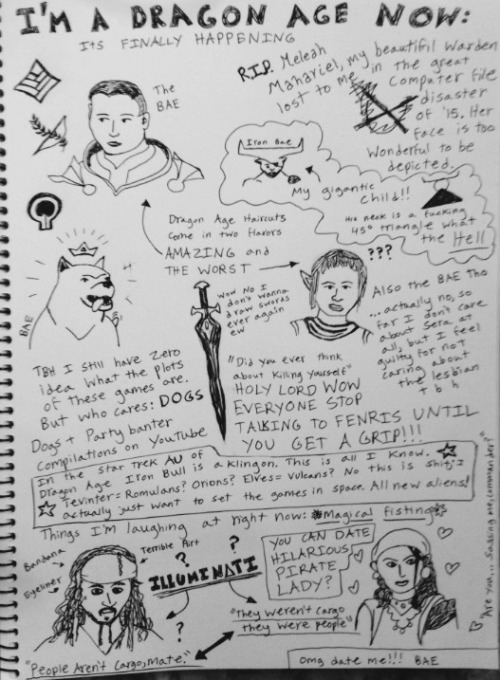 I'M A DRAGON AGE NOW:
ITS FINALLY HAPPENING
The
BAE
R.I.P. Meleah
Mahariel, my beautiful Warden
lost to me in the great
Computer file
disaster
of '15. Her
face is too
wonderful to be
depicted.
Iron Bae
My gigantic
child!!
His neck is a fucking
45° triangle what
the Hell
Dragon Age Haircuts
Come in two flavors
AMAZING and
THE WORST
???
BAE
wow no I
don't wanna
draw swords
ever again
ew
Also the BAE tho
...actually no, so
far I don't care
about Sera at
all, but I feel
guilty for not
caring about
the lesbian
t b h
TBH I still have zero
idea what the plots
of these games are.
But who cares: DOGS
Dogs + Party banter
Compilations on YouTube
"Did you ever think
about killing yourself"
HOLY LORD WOW
EVERYONE STOP
TALKING TO FENRIS UNTIL
YOU GET A GRIP!!!
In the Star Trek AU of
Dragon Age Iron Bull is a Klingon. This is all I know.
Tevinter = Romulans? Orions? Elves = Vulcans? No this is shit, I
actually just want to set the games in space. All new aliens!
Things I'm laughing at right now: *Magical fisting*
Bandana
Eyeliner
Terrible Art
?
?
ILLUMINATI
?
YOU CAN DATE
HILARIOUS
PIRATE
LADY?
"They weren't cargo
they were people"
"People Aren't Cargo, mate."
"Are you... sassing me, commander?"
Omg date me!!! BAE